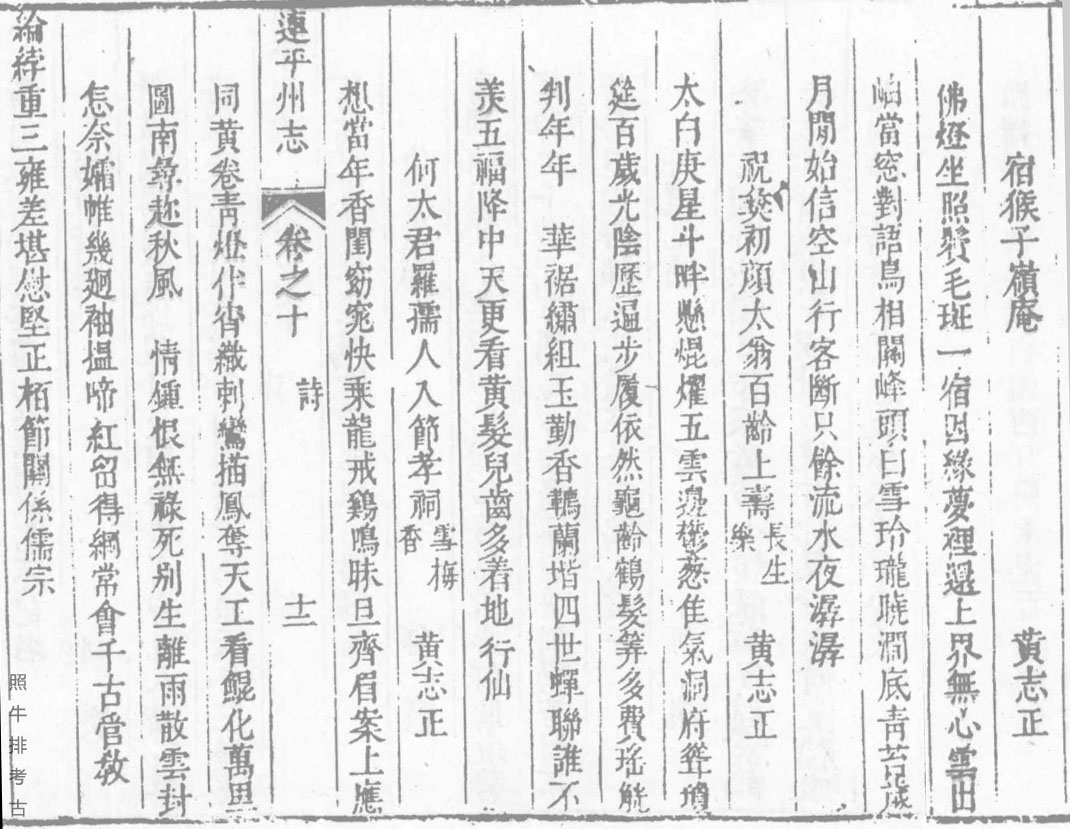 宿猴子嶺庵 黃志正
佛燈坐照鬢毛斑一宿因緣夢裡還上界無心雲出
岫當窓對語鳥相關峰頭白雪玲瓏曉澗底青苔
月閒始信空山行客斷只餘流水夜潺潺
祝 初顔太翁百齡上壽 長生樂 黃志正
太白庚星斗畔懸焜燿五雲邊欎葱隹氣洞府聳瓊
筵百歲光陰歷遍步履依然龜齡鶴髮筭多費瑤觥
判年年 華裾繡組玉勤香韉蘭堦四世蟬聯誰不
羨五福降中天更看黃髮兒齒多着地行仙
何太君羅孺人入節孝祠 雪梅香 黃志正
想當年香閨窈窕快乘龍戒鷄鳴昧旦齊眉案上應
連平州志 卷之十 詩 十二
同黃卷青燈伴宵織刺鸞描鳳奪天工看鯤化萬里
圖南彝趂秋風 情鍾恨無祿死別生離雨散雲封
怎奈孀帷幾廻袖搵啼紅留得綱常會千古管教
綸綍重三雍差堪慰堅正栢節關係儒宗
照牛排考古